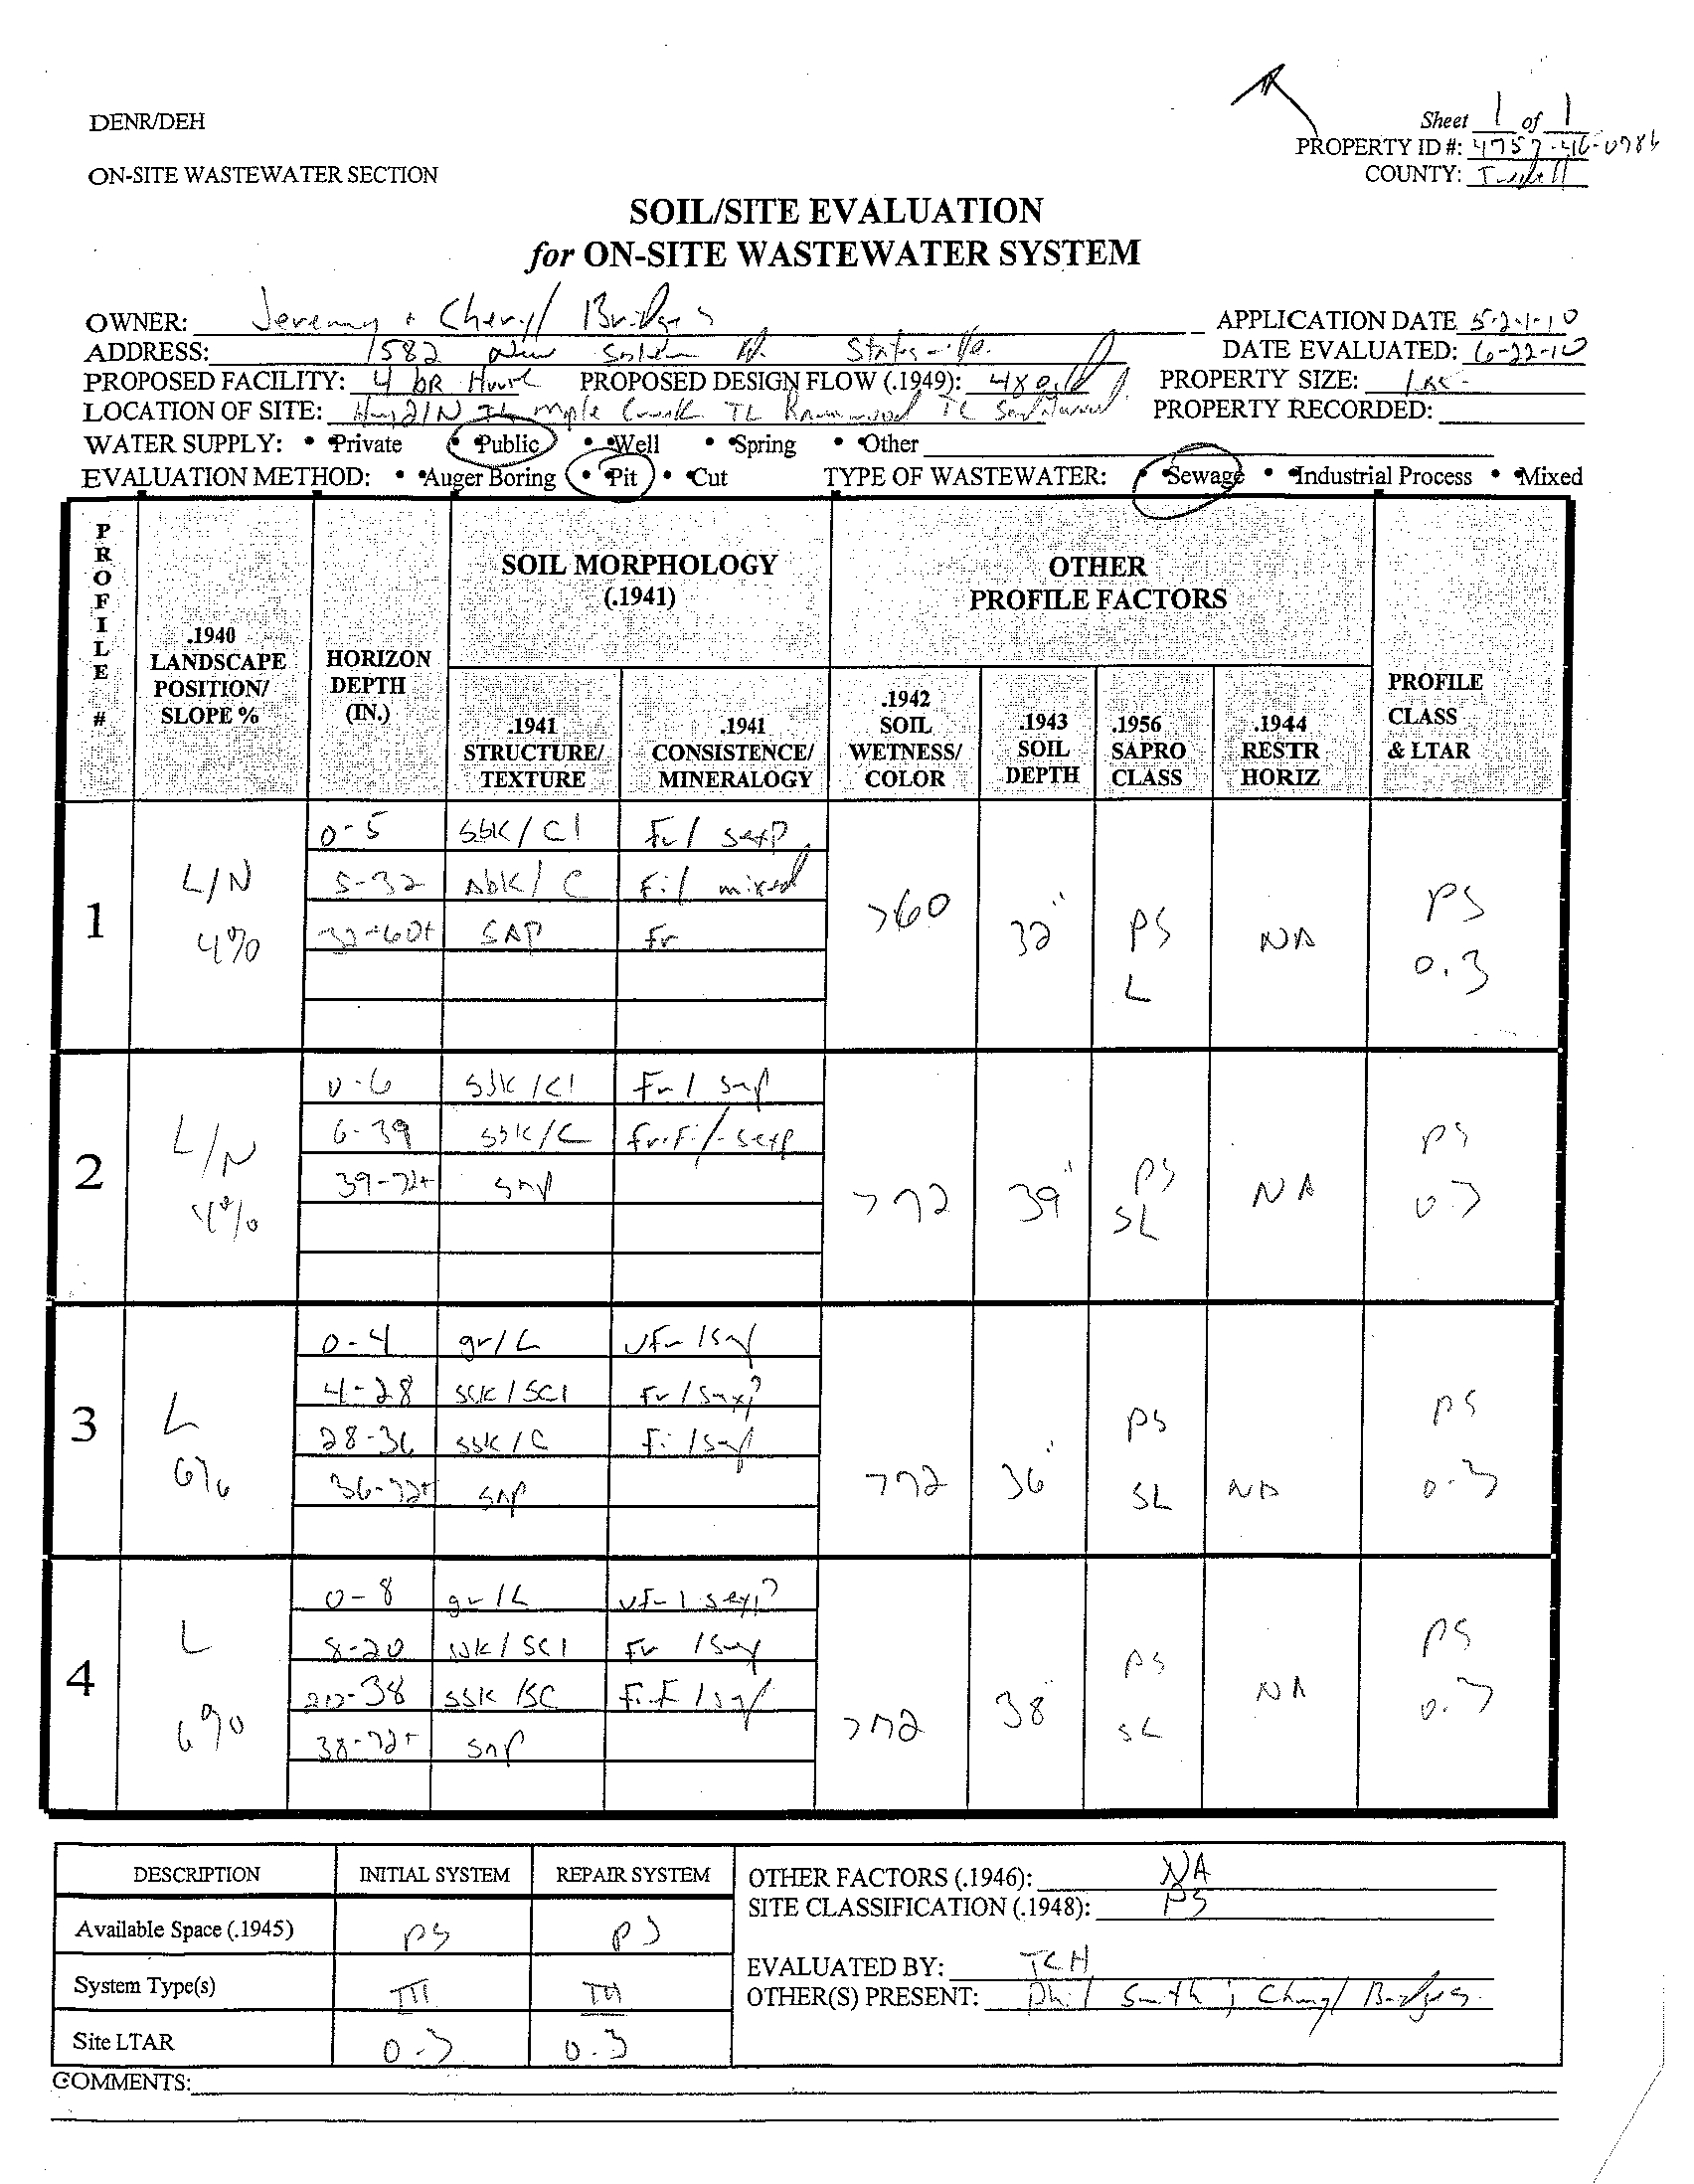 DENR/DEH
Sheet 1 of 1
PROPERTY ID #: 4757-46-0786
ON-SITE WASTEWATER SECTION
COUNTY: Iredell
SOIL/SITE EVALUATION
for ON-SITE WASTEWATER SYSTEM
OWNER: Jeremy + Cheryl Bridges
APPLICATION DATE 5-21-10
ADDRESS: 1582 New Salem Rd. Statesville.
DATE EVALUATED: 6-22-10
PROPOSED FACILITY: 4 BR House PROPOSED DESIGN FLOW (.1949): 480
PROPERTY SIZE: 1 ac
LOCATION OF SITE: Hwy 21N TL TL TL
PROPERTY RECORDED:
WATER SUPPLY: • Private • Public • Well • Spring • Other
EVALUATION METHOD: • Auger Boring • Pit • Cut TYPE OF WASTEWATER: • Sewage • Industrial Process • Mixed
PROFILE #
.1940 LANDSCAPE POSITION/ SLOPE %
HORIZON DEPTH (IN.)
SOIL MORPHOLOGY (.1941)
OTHER PROFILE FACTORS
PROFILE CLASS & LTAR
.1941 STRUCTURE/ TEXTURE
.1941 CONSISTENCE/ MINERALOGY
.1942 SOIL WETNESS/ COLOR
.1943 SOIL DEPTH
.1956 SAPRO CLASS
.1944 RESTR HORIZ
1 L/N 4%
0-5 sbk/Cl Fr/ sexp
5-32 Abk/ C Fi/ mixed
32-60+ SAP Fr
>60 32" PS L NA PS 0.3
2 L/N 4%
0-6 sbk/Cl Fr/ sexp
6-39 sbk/C Fr-Fi/ sexp
39-72+ SAP
>72 39" PS SL NA PS 0.3
3 L 6%
0-4 gr/L vFr/sexp
4-28 sbk/SCl Fr/sexp
28-36 sbk/C Fi/sexp
36-72+ SAP
>72 36" PS SL NA PS 0.3
4 L 6%
0-8 gr/L vFr/sexp
8-20 sbk/SCl Fr/sexp
20-38 sbk/SC /sexp
38-72+ SAP
>72 38" PS SL NA PS 0.3
DESCRIPTION INITIAL SYSTEM REPAIR SYSTEM
Available Space (.1945) PS PS
System Type(s) III III
Site LTAR 0.3 0.3
OTHER FACTORS (.1946): NA
SITE CLASSIFICATION (.1948): PS
EVALUATED BY: TCH
OTHER(S) PRESENT: Phil Smith; Cheryl Bridges
COMMENTS: